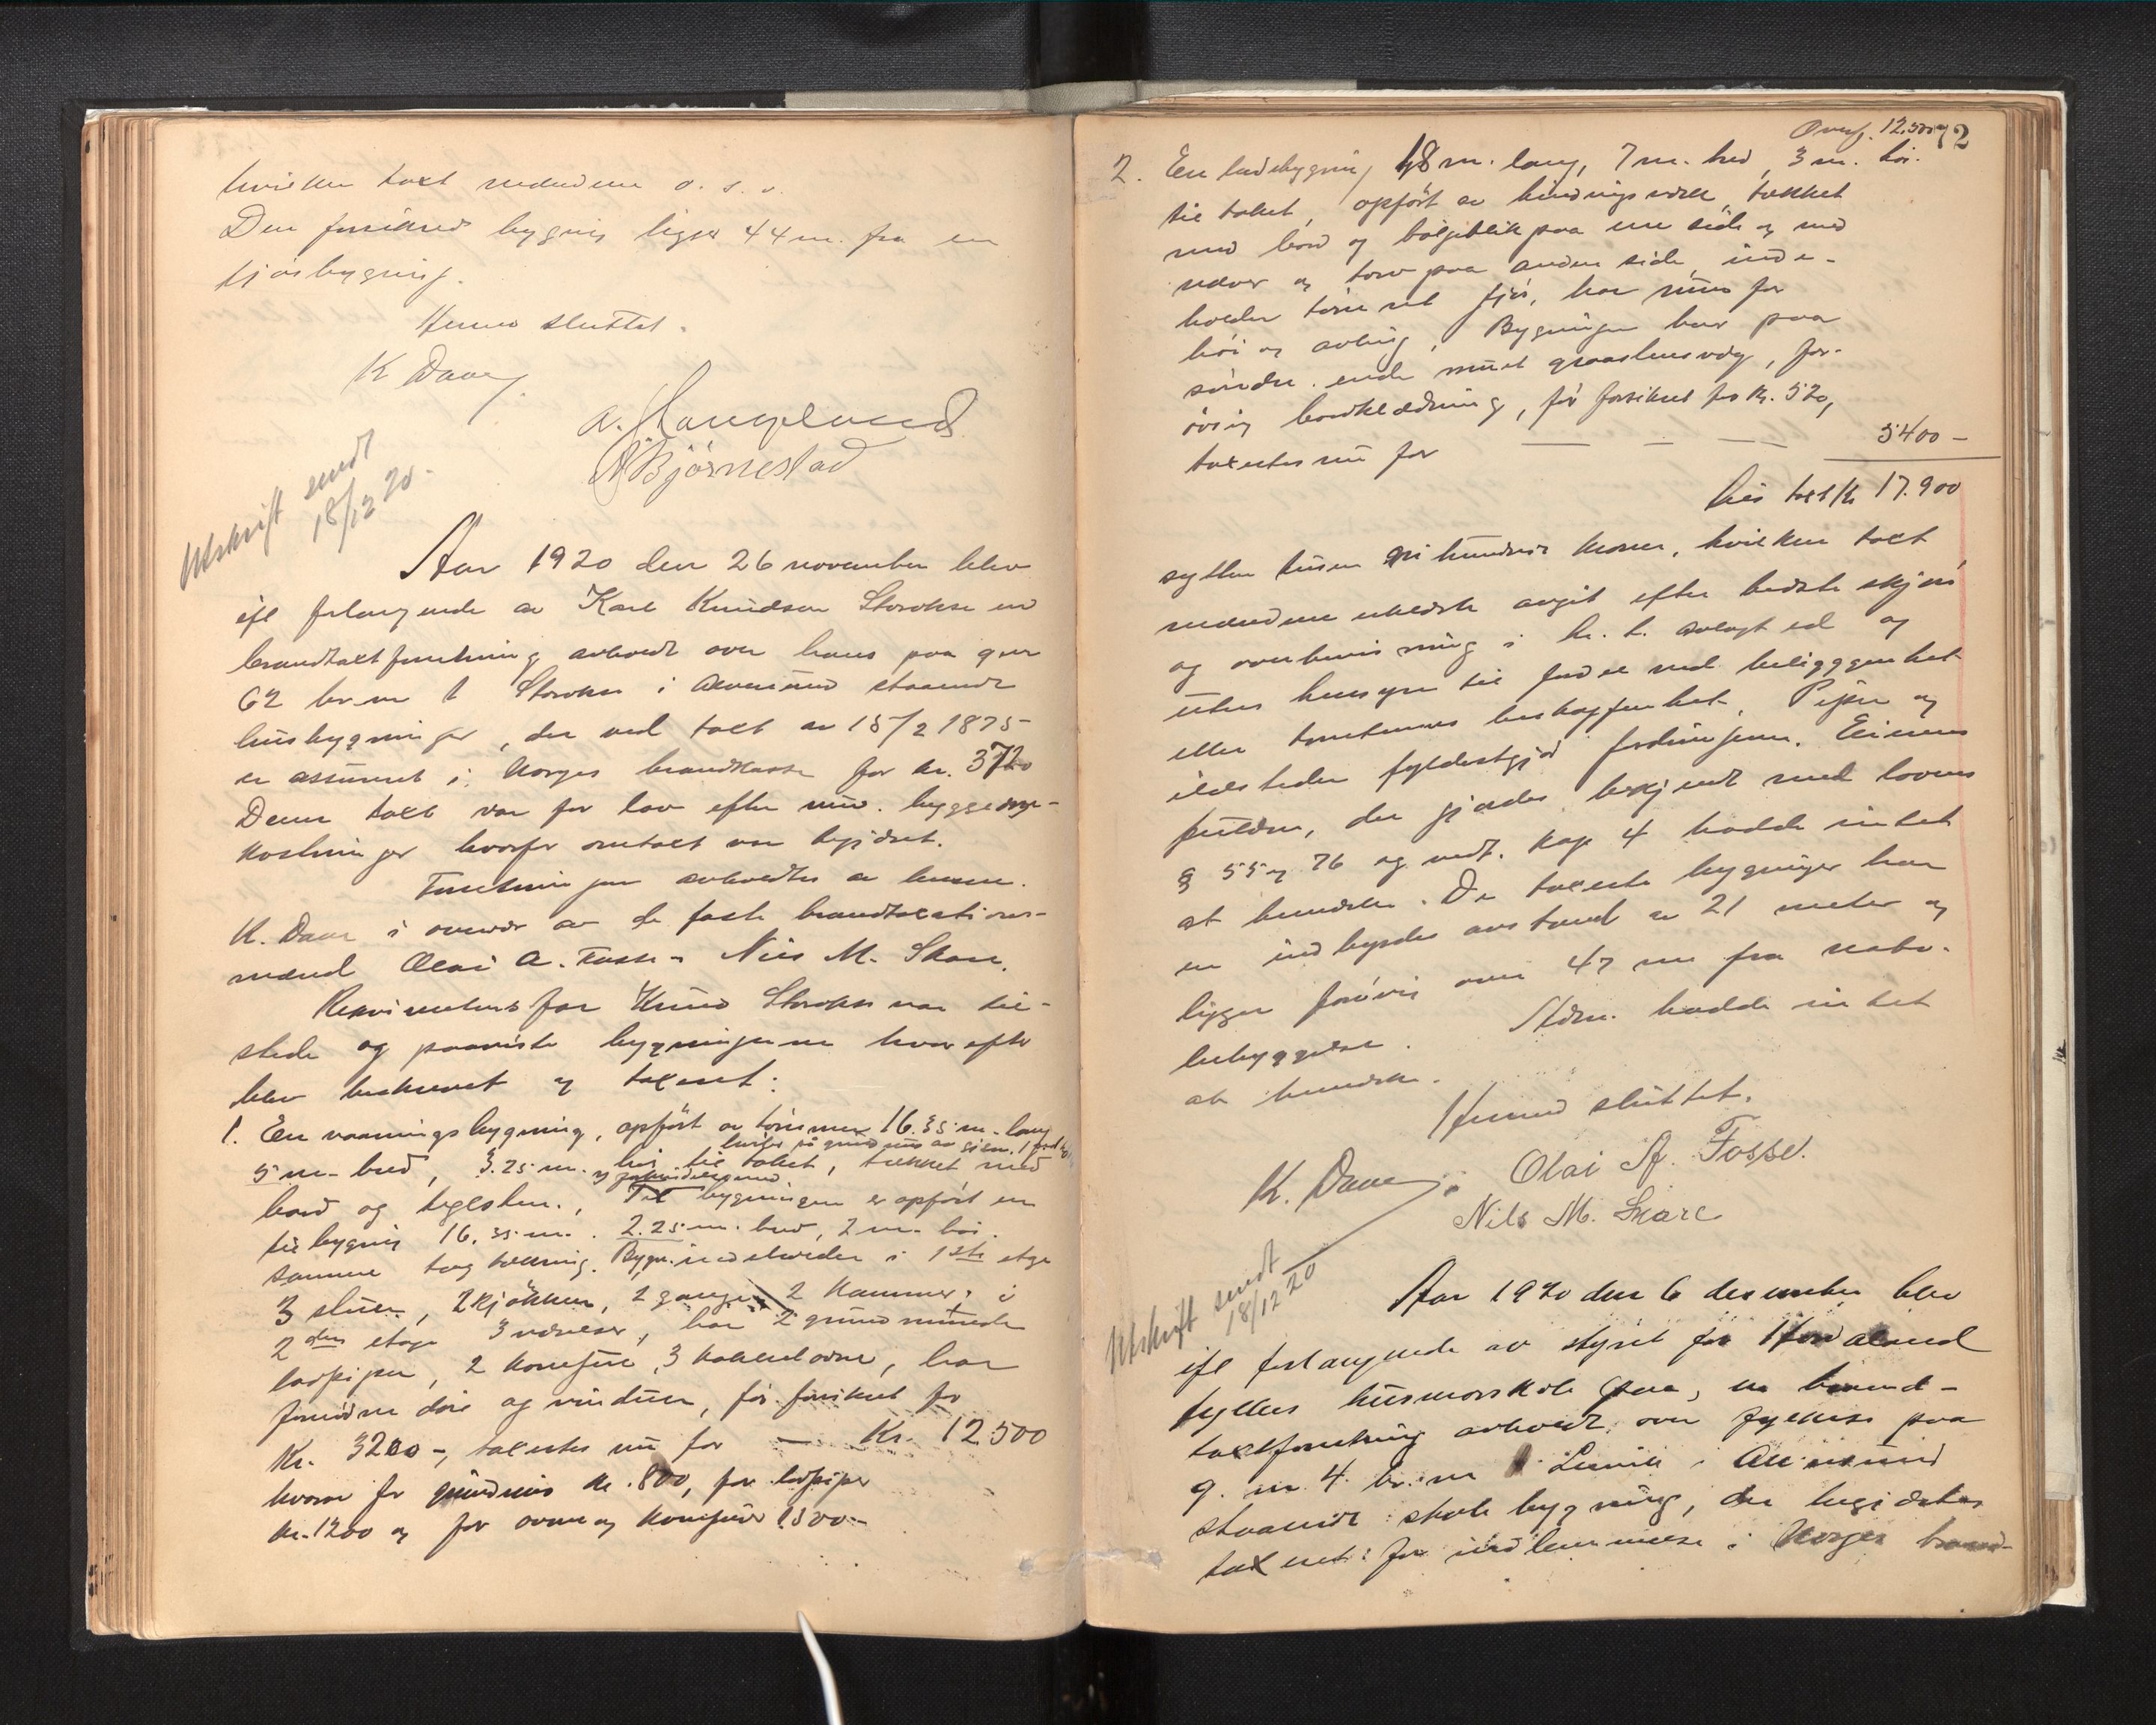 hvilken taxt mændene o. s. v.
Den forsikred bygning ligger 44 m. fra en
fjösbygning.
Hermed sluttet.
K Daae
A. Hauglund
Bjørnestad
Utskrift sendt
18/12 20.
Aar 1920 den 26 november blev
efl forlangende av Karl Knudsen Storoksen
brandtaxtforretning avholdt over hans paa gnr
62 br. nr 1 Storoksen i Alversund staaende
husbygninger, der ved taxt av 15/2 1875
er assureret i Norges brandkasse for kr. 3720
Denne taxt var for lav efter nuv. byggeom-
kostninger hvorfor omtaxt var begjæret.
Forretningen avholdtes av lensm.
K. Daae i overvær av de faste brandtaxations-
mænd Olai A. Fosse og Nils M. Skare.
Rekvirentens far Knud Storoksen var til-
stede og paaviste bygningerne hvorefter
blev beskrevet og taxeret:
1. En vaaningsbygning, opført av tømmer 16.35 m. lang
hviler på grundmur av
5 m. bred, 3.25 m. høi til taket, tækket med
bord og teglsten., Til bygningen er opført en
tilbygning 16.35 m. 2.25 m. bred, 2 m. høi.
samme tagtækning. Bygn. indeholder i 1ste etge
3 stuer, 2 kjøkken, 2 gange 2 kammer, i
2den etage 3 værelser, har 2 grundmurede
lospiper, 2 komfur, 3 kakkelovne, har
fornødne döre og vinduer, för forsikret for
Kr. 3200-, taxertes nu for — Kr. 12500
hvorav for grundmur kr. 800, for lospiper
kr. 1200 og for ovne og komfurer 1500-
Overf. 12.500
72
2. En ladebygning 18 m. lang, 7 m. bred, 3 m. høi
til taket, opført av bindingsværk, tækket
med bord og bølgeblik paa ene side og med
næver og torv paa anden side, inde-
holder tømret fjös, har rum for
høi og avling, Bygningen har paa
søndre ende muret graastensvæg, for-
øvrig bordklædning, för forsikret for kr. 520,
taxertes nu for — — — 5400 –
Lies taxt kr 17.900
sytten tusen ni hundrede kroner, hvilken taxt
mændene erklærte avgit efter bedste skjøn
og overbevisning i h. t. avlagt ed og
uten hensyn til fordel ved beliggenhet
eller tomtenes beskaffenhet. Piper og
ildsteder fyldestgjør fordringene. Eieren
fuldm., der gjordes bekjendt med lovens
§ 55 og 76 og vedt. kap 4 hadde intet
at bemærke. De taxerte bygninger har
en indbyrdes avstand av 21 meter og
ligger forøvrig over 47 m fra nabo-
bebyggelse. Adm. hadde intet
at bemærke.
Hermed sluttet.
K. Daae. Olai A. Fosse.
Nils M. Skare
Utskrift sendt
18/12 20
Aar 1920 den 6 desember blev
efl forlangende av styret for Hordaland
fylkes husmorskole paa, en brand-
taxtforretning avholdt over fylkets paa
g. nr. 4 br. nr Leivik i Alversund
staaende skolebygning, der begjærtes
taxeret for indlemmelse i Norges brand-